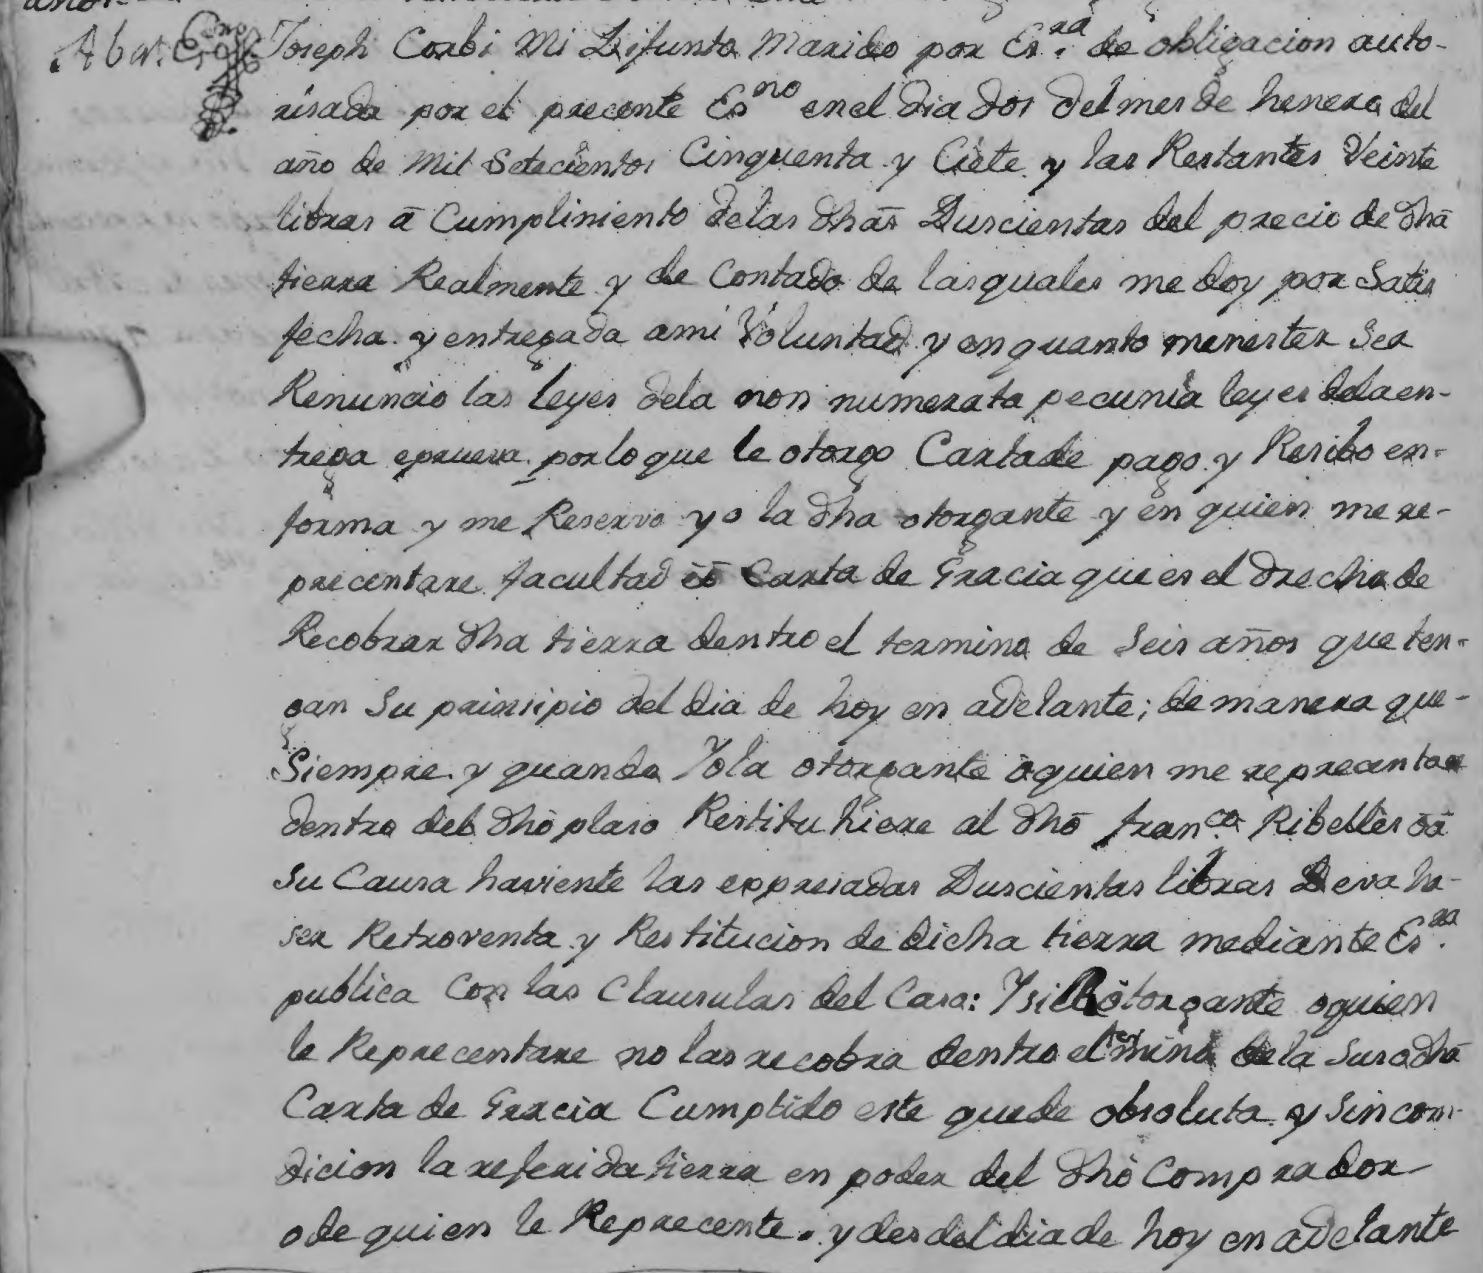 Joseph Corbi Mi Difunto Marido por Es.ra de obligacion auto-
risada por el precente Esno en el dia dos del mes de henero del
año de Mil Setecientos Cinquenta y Ciete y las Restantes Veinte
libras â Cumpliniento de las dhas Duscientas del precio de dha
tierra Realmente y de Contado de las quales me doy por Satis
fecha y entregada a mi Voluntad y en quanto menester Ser
Renuncio las Leyes de la non numerata pecunia leyes de la en-
trega eprueva por lo que le otorgo Carta de pago y Resibo en-
forma y me Reservo yo la dha otorgante y en quien me re-
precentare facultad Carta de Gracia que es el drecho de
Recobrar dha tierra dentro el termino de Seis años que ten-
gan Su prinsipio del dia de hoy en adelante; de manera que-
Siempre y quando Yo la otorgante o quien me reprecentare
dentro del dho plaso Restituhiere al dho Fran.co Ribelles ôâ
Su Causa haviente las expresadas Duscientas libras Deva ha-
ser Retroventa y Restitucion de dicha tierra mediante Es.ra
publica Con las Clausulas del Caso: Y si otorgante o quien
le Reprecentare no las recobra dentro el termino de la Susodha
Carta de Gracia Cumplido este quede absoluta y Sin con-
dicion la referida tierra en poder del dho Comprador
o de quien le Reprecente. y desdel dia de hoy en adelante